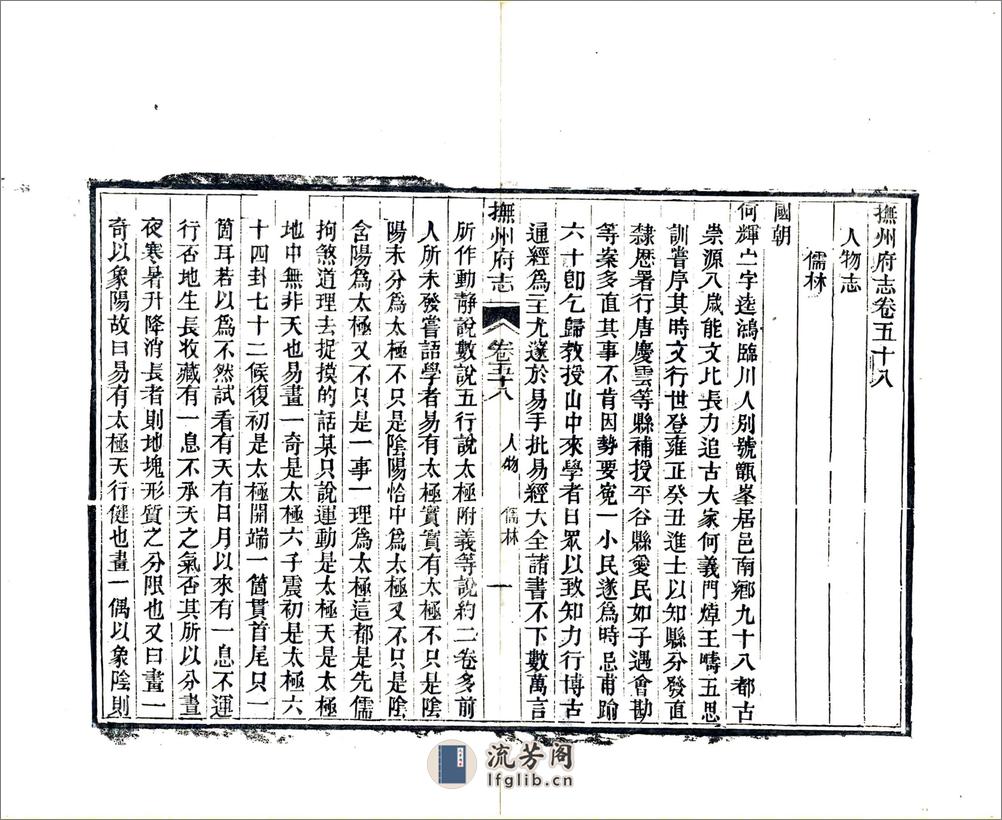 撫州府志卷五十八
人物志
儒林
國朝
何輝宁字逵鴻臨川人別號甑峯居邑南鄉九十八都古
崇源八歲能文比長力追古大家何義門焯王疇五思
訓嘗序其時文行世登雍正癸丑進士以知縣分發直
隸歴署行唐慶雲等縣補授平谷縣愛民如子遇會勘
等案多直其事不肯因勢要寃一小民遂為時忌甫踰
六十卽乞歸教授山中來學者日眾以致知力行博古
通經為主尤邃於易手批易經大全諸書不下數萬言
撫州府志
卷五十八
人物
儒林
一
所作動靜說數說五行說太極附義等說約二卷多前
人所未發嘗語學者易有太極實實有太極不只是陰
陽未分爲太極不只是陰陽恰中爲太極又不只是陰
含陽爲太極又不只是一事一理爲太極這都是先儒
拘煞道理去捉摸的話某只說運動是太極天是太極
地中無非天也易畫一奇是太極六子震初是太極六
十四卦七十二候復初是太極開端一箇貫首尾只一
箇耳若以爲不然試看有天有日月以來有一息不運
行否地生長收藏有一息不承天之氣否其所以分晝
夜寒暑升降消長者則地塊形質之分限也又曰畫一
奇以象陽故曰易有太極天行健也畫一偶以象陰則
流芳阁
lfglib.cn